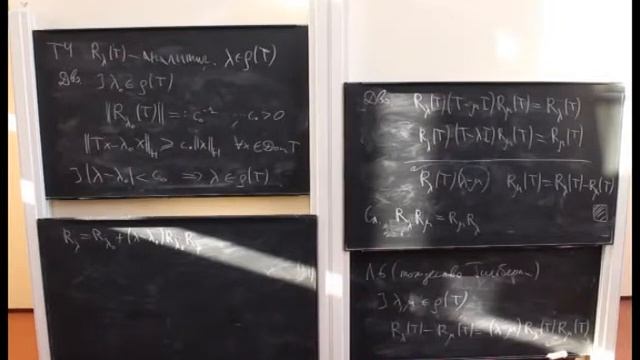 Т4 R_λ(T) – аналитич. λ∈ρ(T)
Док. ∃ λ₀∈ρ(T)
||R_λ₀(T)|| =: c₀⁻¹ , c₀>0
||Tx-λ₀x||_H ⩾ c₀||x||_H ∀x∈Dom T
∃ |λ-λ₀|<c₀ ⟹ λ∈ρ(T)
R_λ = R_λ₀ + (λ-λ₀)R_λ₀R_λ
Док. R_λ(T)(T-μI)R_μ(T) = R_λ(T)
R_λ(T)(T-λI)R_μ(T) = R_μ(T)
R_λ(T)(λ-μ) R_μ(T) = R_λ(T)-R_μ(T)
R_λR_μ = R_μR_λ
Л5 (тождество Гильберта)
∃ λ,μ∈ρ(T)
R_λ(T)-R_μ(T) = (λ-μ)R_λ(T)R_μ(T)